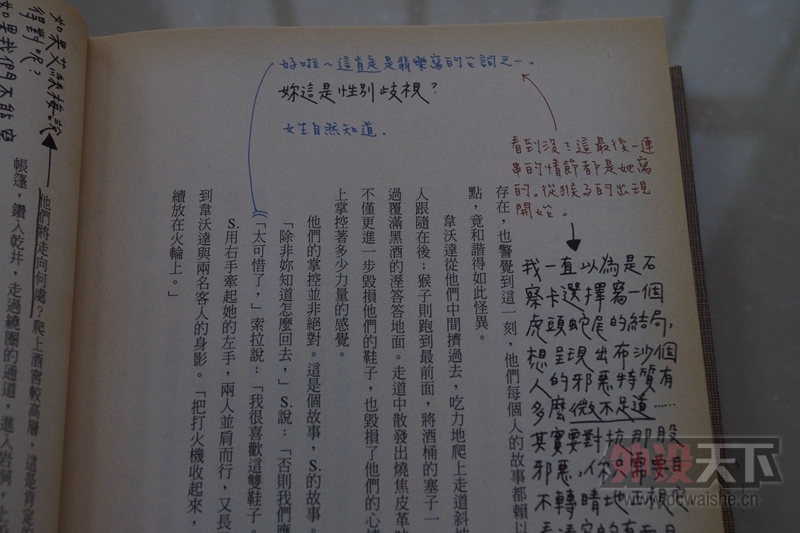 好啦～這肯定是翡樂寫的台詞之一。
妳這是性別歧視？
女生自然知道。
看到沒？這最後一連
串的情節都是她寫
的。從猴子的出現
開始。
我一直以為是石
察卡選擇寫一個
虎頭蛇尾的結局，
想呈現出布沙個
人的邪惡特質有
多麼微不足道……
其實要對抗那股
邪惡，你只需要目
不轉睛地正視它
存在，也警覺到這一刻，他們每個人的故事都賴以
點，竟和諧得如此怪異。
韋沃達從他們中間擠過去，吃力地爬上走道斜坡
人跟隨在後；猴子則跑到最前面，將酒桶的塞子一
過覆滿黑酒的溼答答地面。走道中散發出燒焦皮革味
不僅更進一步毀損他們的鞋子，也毀損了他們的心情
上掌控著多少力量的感覺。
他們的掌控並非絕對。這是個故事，S.的故事。
「除非妳知道怎麼回去，」S.說：「否則我們應
「太可惜了，」索拉說：「我很喜歡這雙鞋子。
S.用右手牽起她的左手，兩人並肩而行，又長
到韋沃達與兩名客人的身影。「把打火機收起來，
續放在火輪上。」
如果艾絲梅說
得對呢？
如果我們不能
他們將走向何處？爬上酒窖較高層，這是肯定的
帳篷，鑽入乾井，走過繞圈的通道，進入岩洞，
外设天下
www.pcwaishe.cn